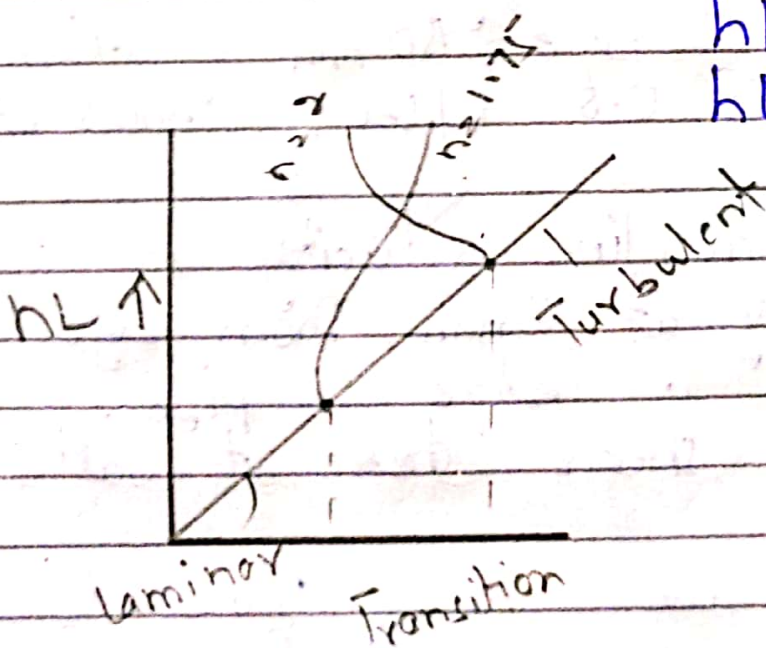 hl
hl
n = 2
n = 1.75
hL ↑
Turbulent
Laminar.
Transition